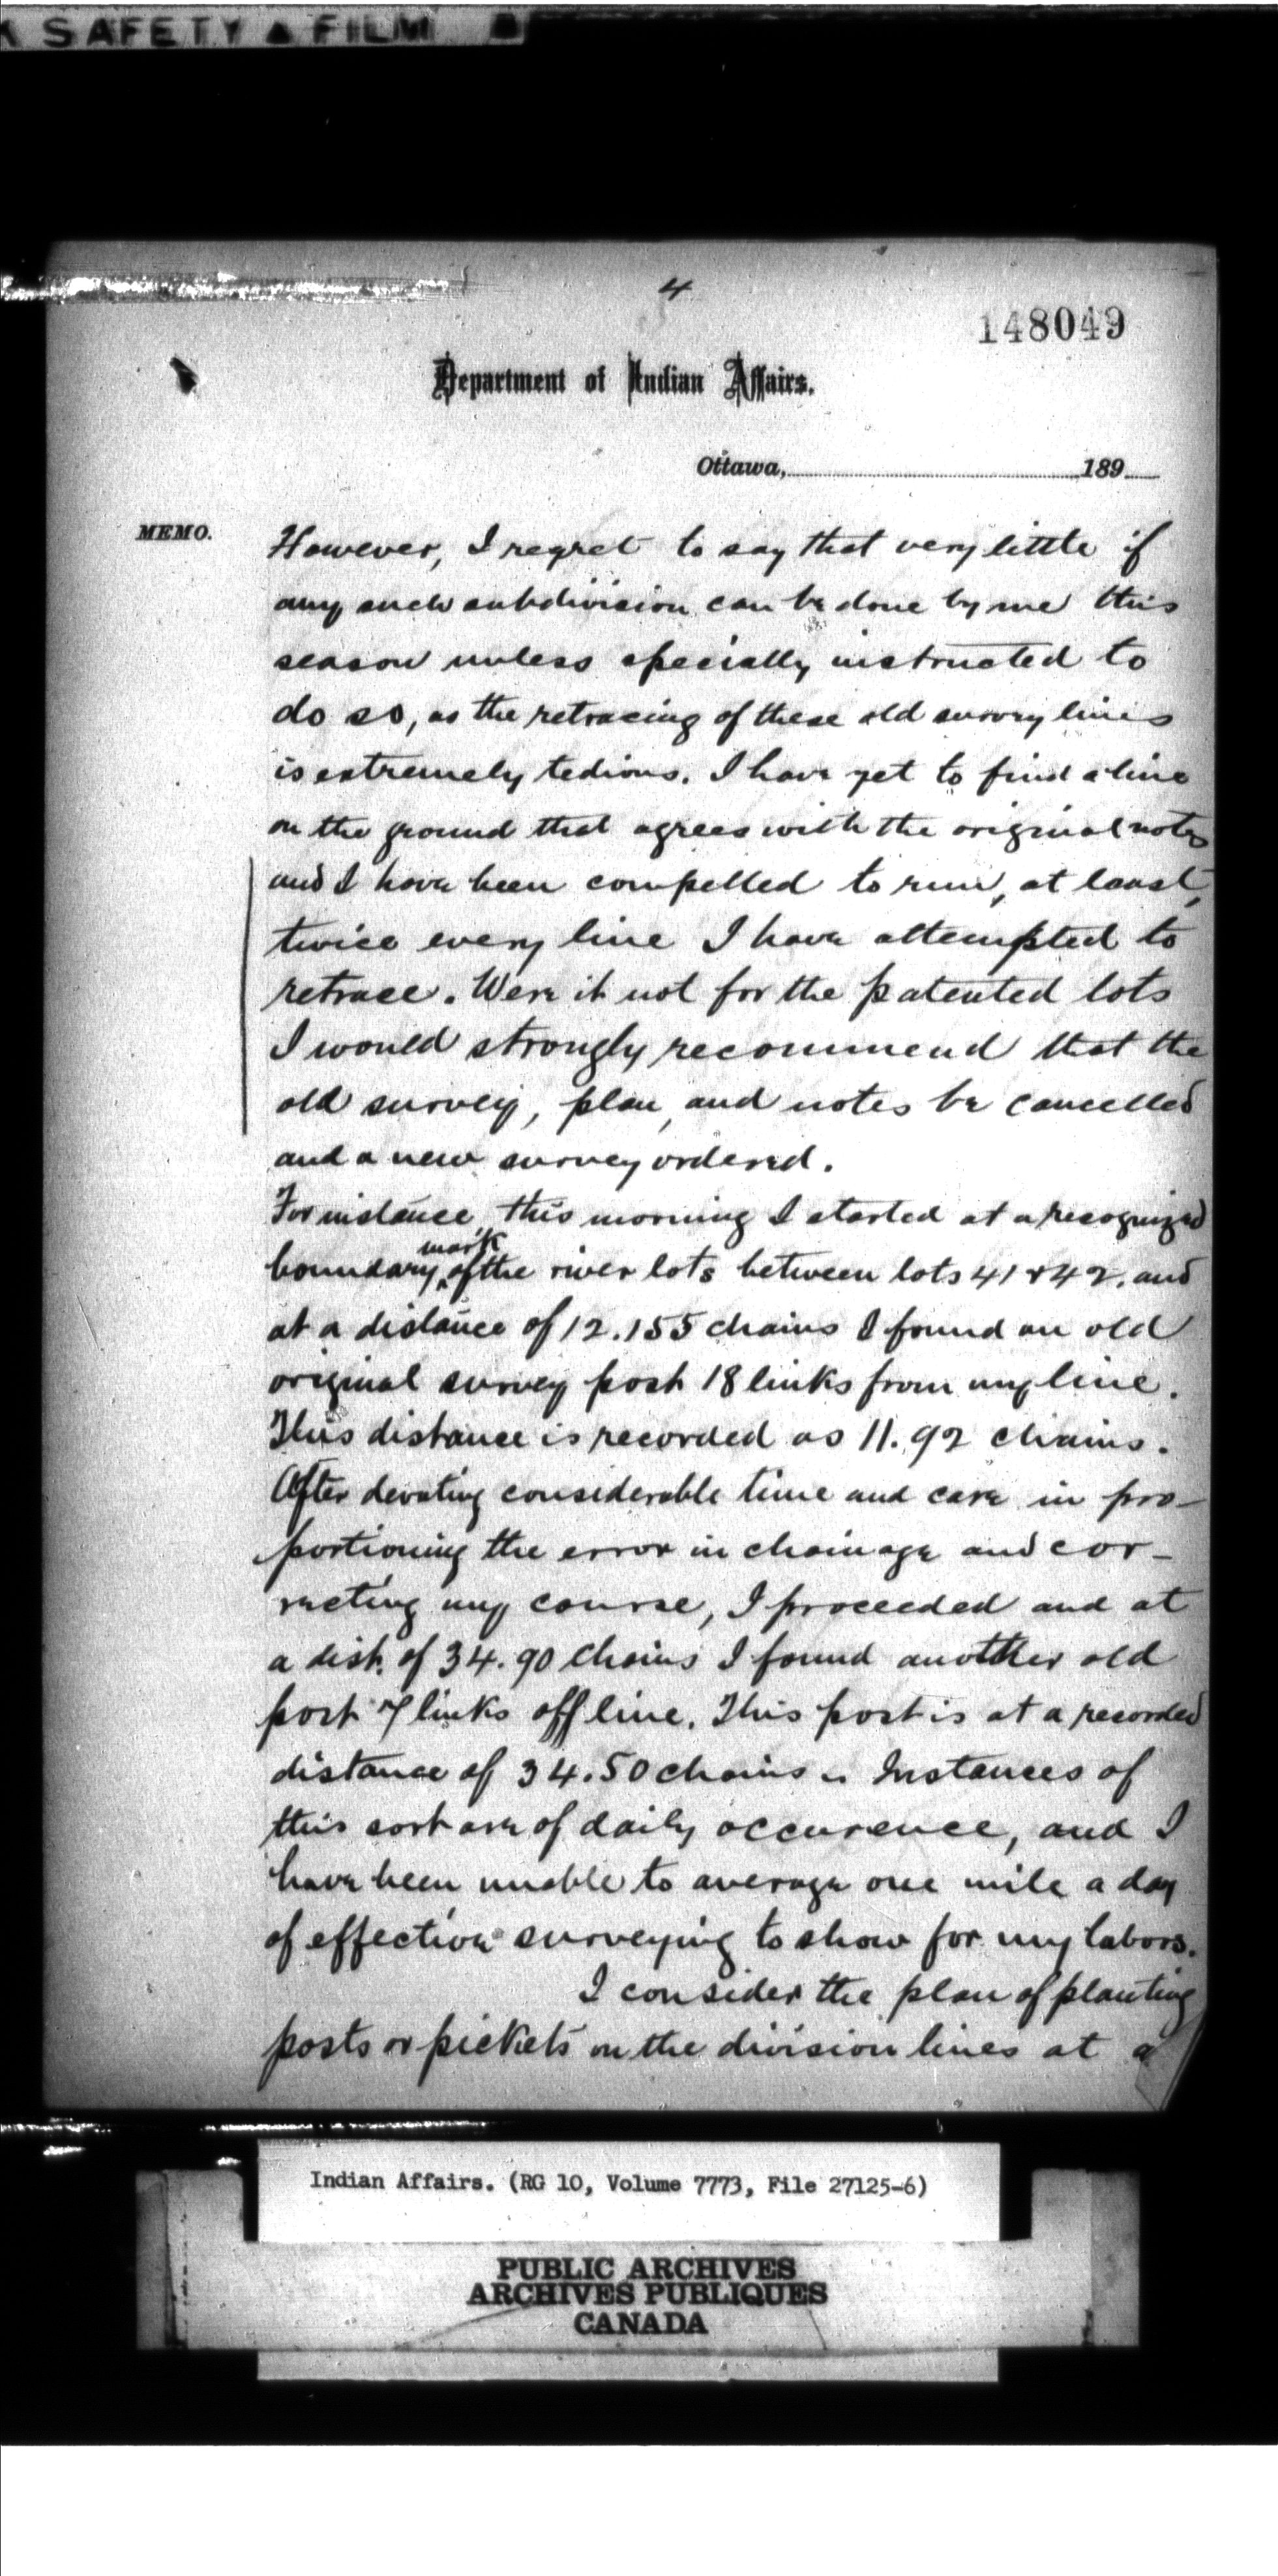 SAFETY ▲ FILM
4
148049
Department of Indian Affairs.
Ottawa, 189
MEMO.
However, I regret to say that very little if
any such subdivision can be done by me this
season unless specially instructed to
do so, as the retracing of these old survey lines
is extremely tedious. I have yet to find a line
on the ground that agrees with the original notes
and I have been compelled to run, at least,
twice every line I have attempted to
retrace. Were it not for the patented lots
I would strongly recommend that the
old survey, plan, and notes be cancelled
and a new survey ordered.
For instance, this morning I started at a recognized
boundary mark of the river lots between lots 41 & 42. and
at a distance of 12.155 chains I found an old
original survey post 18 links from my line.
This distance is recorded as 11.92 chains.
After devoting considerable time and care in pro-
portioning the error in chainage and cor-
recting my course, I proceeded and at
a dist. of 34.90 chains I found another old
post 7 links off line. This post is at a recorded
distance of 34.50 chains. Instances of
this sort are of daily occurence, and I
have been unable to average one mile a day
of effective surveying to show for my labors.
I consider the plan of planting
posts or pickets on the division lines at a
Indian Affairs. (RG 10, Volume 7773, File 27125-6)
PUBLIC ARCHIVES
ARCHIVES PUBLIQUES
CANADA